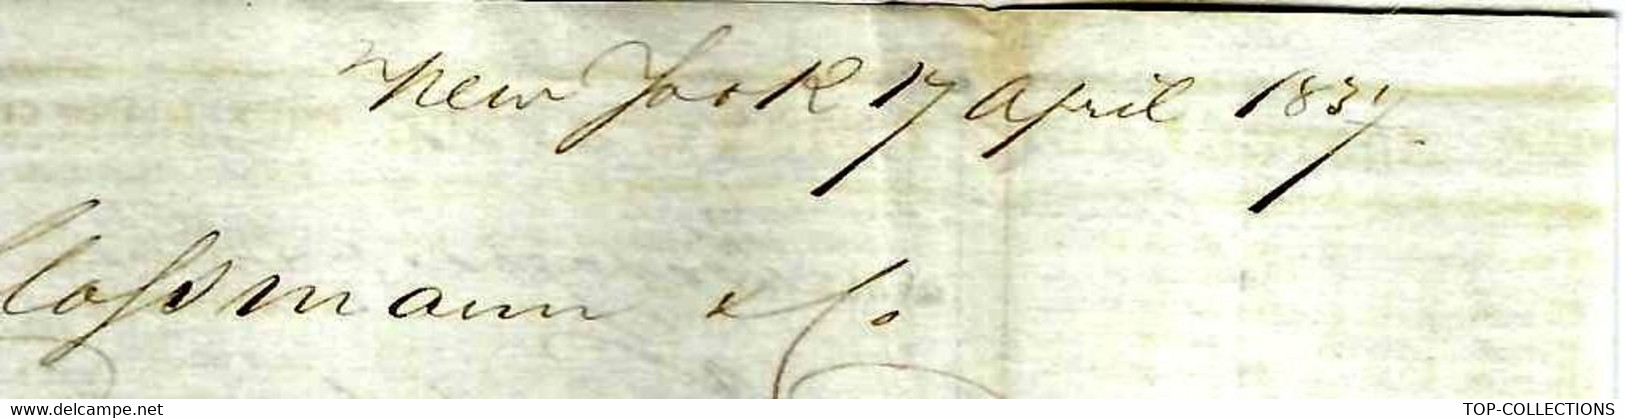 New York 17 April 1837.
Classmann & Co.
www.delcampe.net TOP-COLLECTIONS